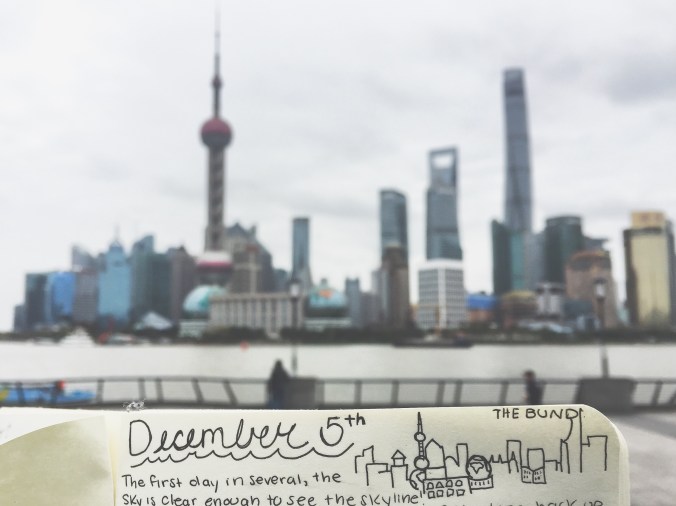 December 5th
THE BUND!
The first day in several, the
sky is clear enough to see the skyline!